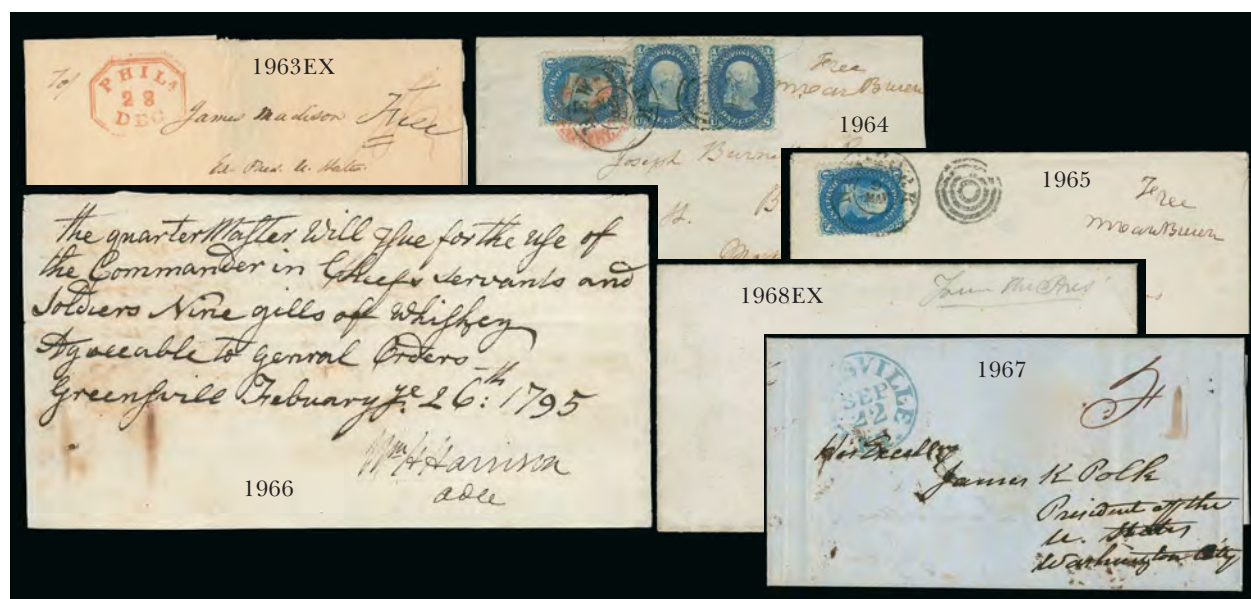 1963EX
PHILA
28
DEC
To/
James Madison Free
Ex Pres. U. States.
Free
MVanBuren
1964
Joseph Burn
1965
Free
MVanBuren
MAR
the quarterMaster Will Issue for the Use of
the Commander in Chiefs Servants and
Soldiers Nine gills of Whiskey
Agreeable to genral Orders
Greensvill Febuary ye. 26:th 1795
Wm H Harrison
adce
1966
1968EX
1967
SVILLE
SEP
12
His Excellcy
James K Polk
President of the
U. States
Washington City